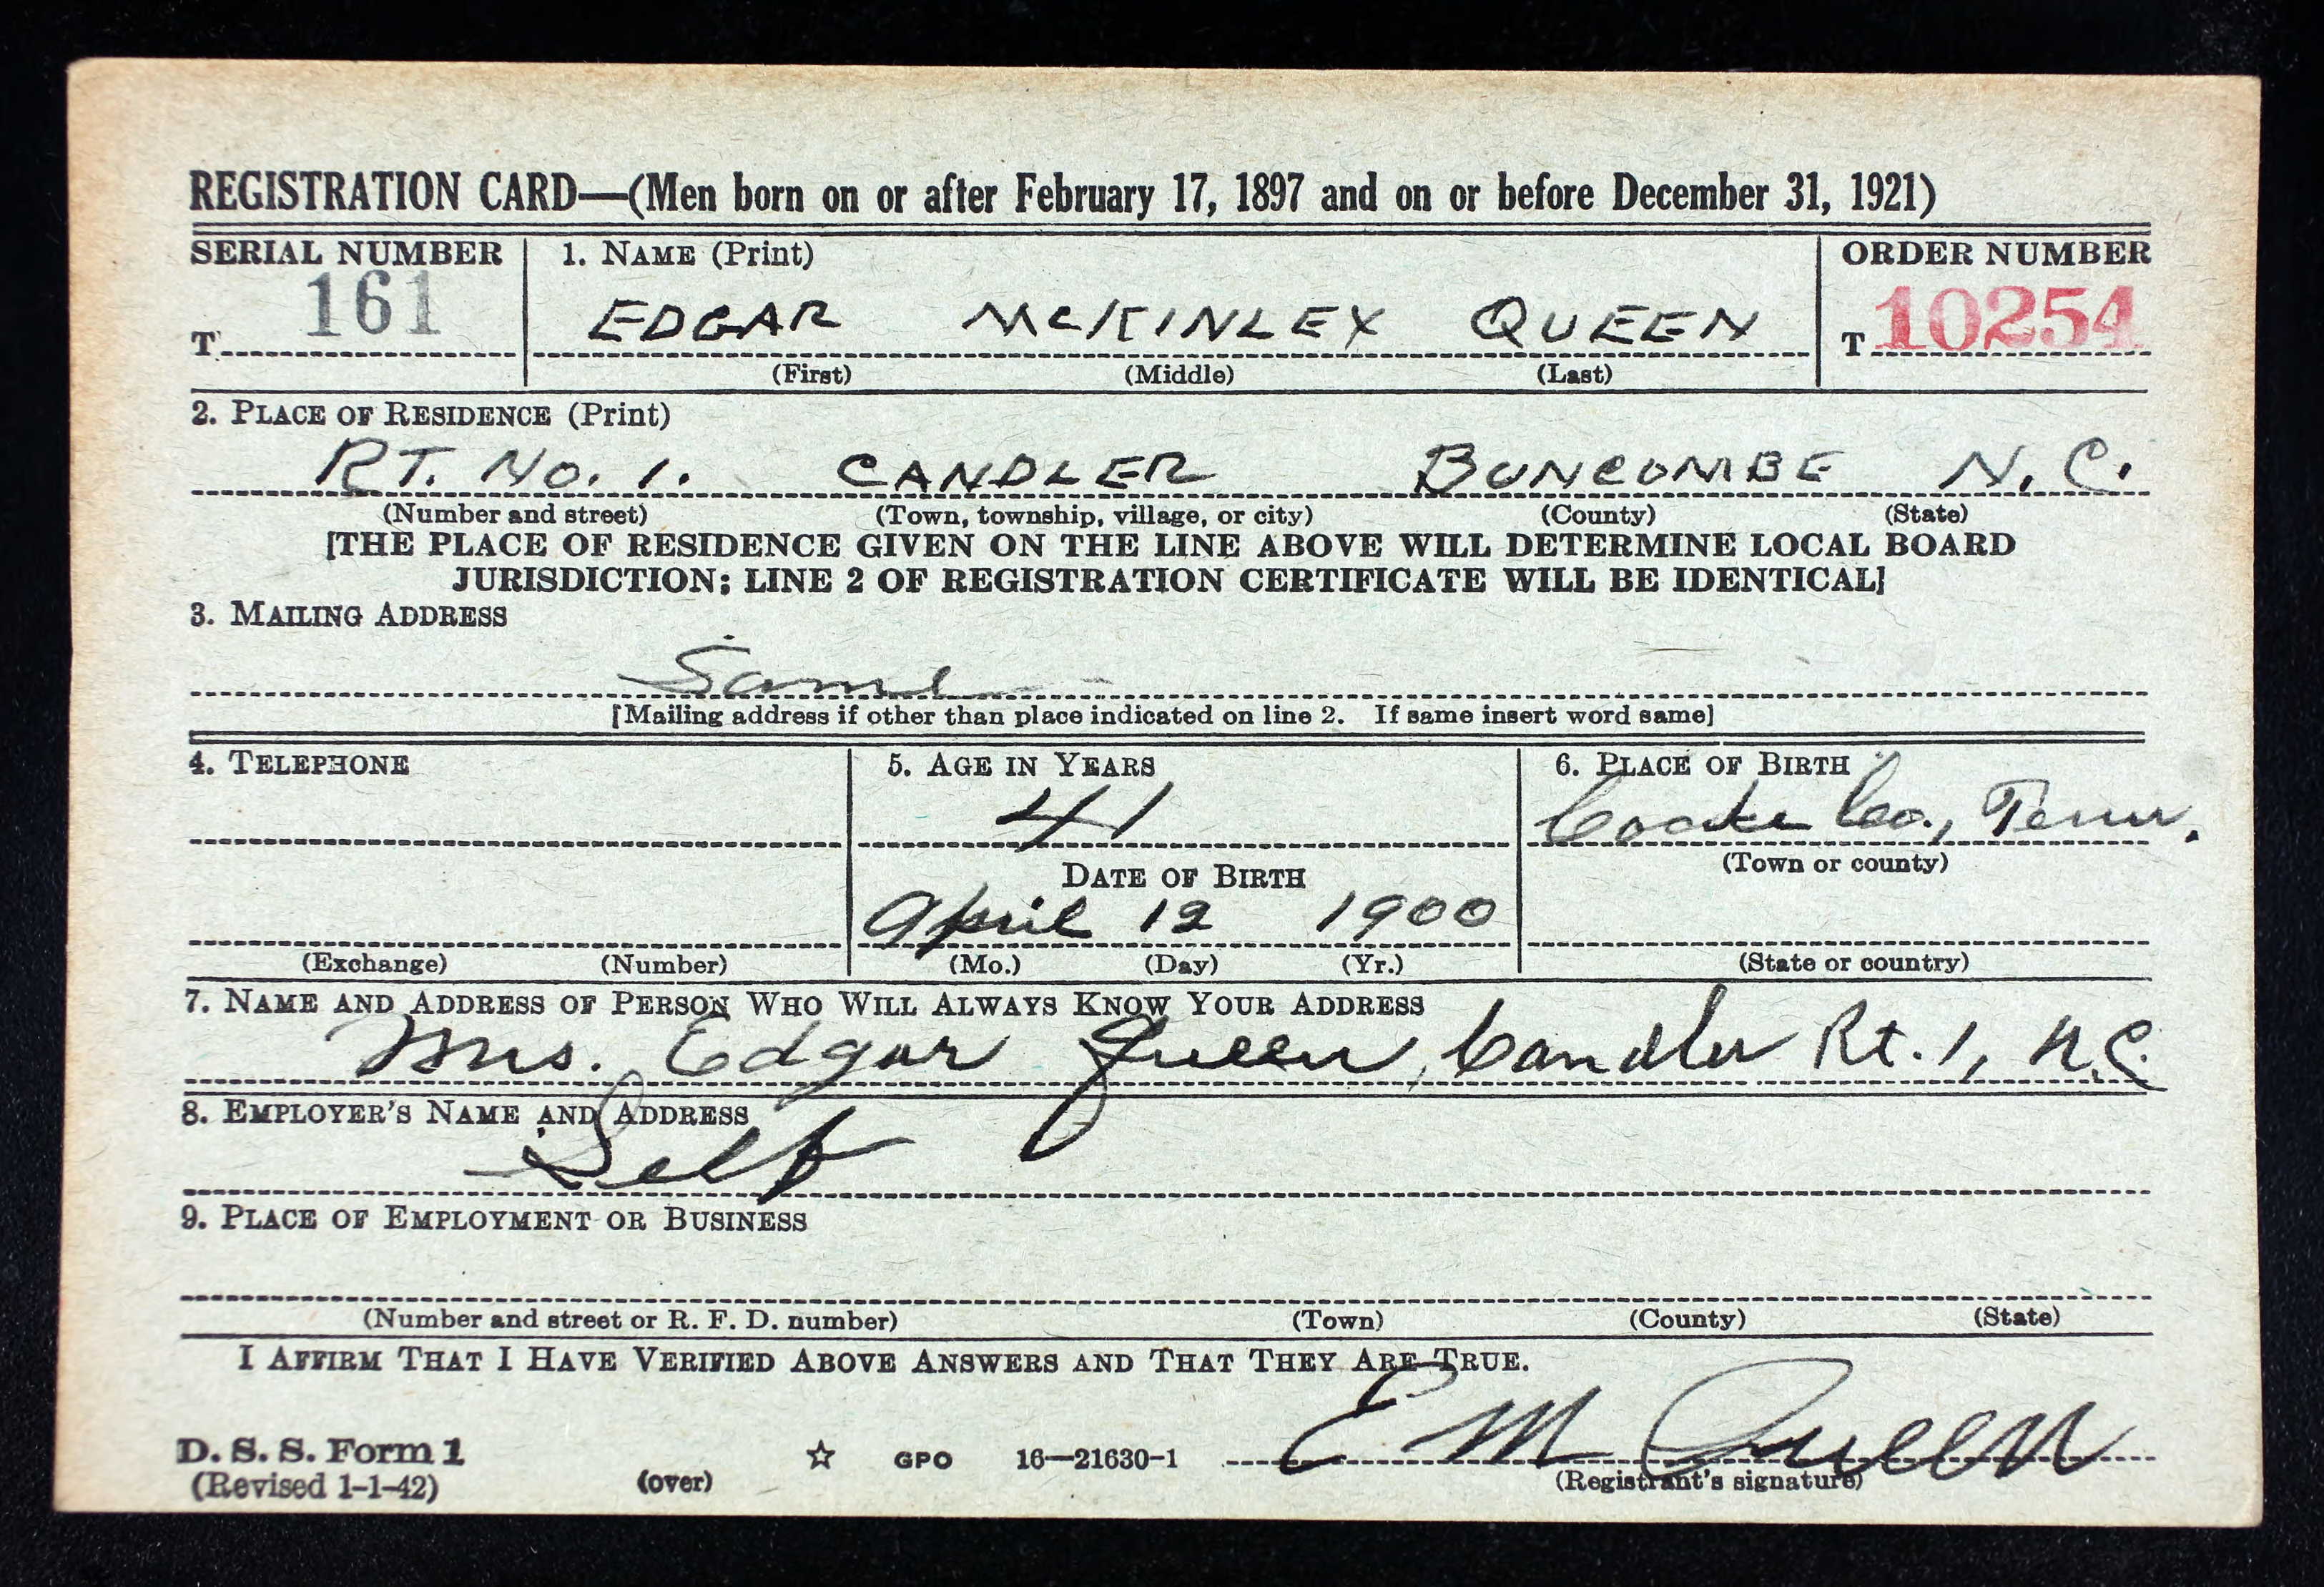 REGISTRATION CARD—(Men born on or after February 17, 1897 and on or before December 31, 1921)
SERIAL NUMBER 1. NAME (Print) ORDER NUMBER
T 161 EDGAR MCKINLEY QUEEN T 10254
(First) (Middle) (Last)
2. PLACE OF RESIDENCE (Print)
RT. No. 1. CANDLER BUNCOMBE N.C.
(Number and street) (Town, township, village, or city) (County) (State)
[THE PLACE OF RESIDENCE GIVEN ON THE LINE ABOVE WILL DETERMINE LOCAL BOARD
JURISDICTION; LINE 2 OF REGISTRATION CERTIFICATE WILL BE IDENTICAL]
3. MAILING ADDRESS
Same
[Mailing address if other than place indicated on line 2. If same insert word same]
4. TELEPHONE 5. AGE IN YEARS 6. PLACE OF BIRTH
41 Cocke Co., Tenn.
(Town or county)
DATE OF BIRTH
April 12 1900
(Exchange) (Number) (Mo.) (Day) (Yr.) (State or country)
7. NAME AND ADDRESS OF PERSON WHO WILL ALWAYS KNOW YOUR ADDRESS
Mrs. Edgar Queen, Candler Rt. 1, N.C.
8. EMPLOYER'S NAME AND ADDRESS
Self
9. PLACE OF EMPLOYMENT OR BUSINESS
(Number and street or R. F. D. number) (Town) (County) (State)
I AFFIRM THAT I HAVE VERIFIED ABOVE ANSWERS AND THAT THEY ARE TRUE.
E M Queen
D. S. S. Form 1 ☆ GPO 16—21630-1
(Revised 1-1-42) (over) (Registrant's signature)